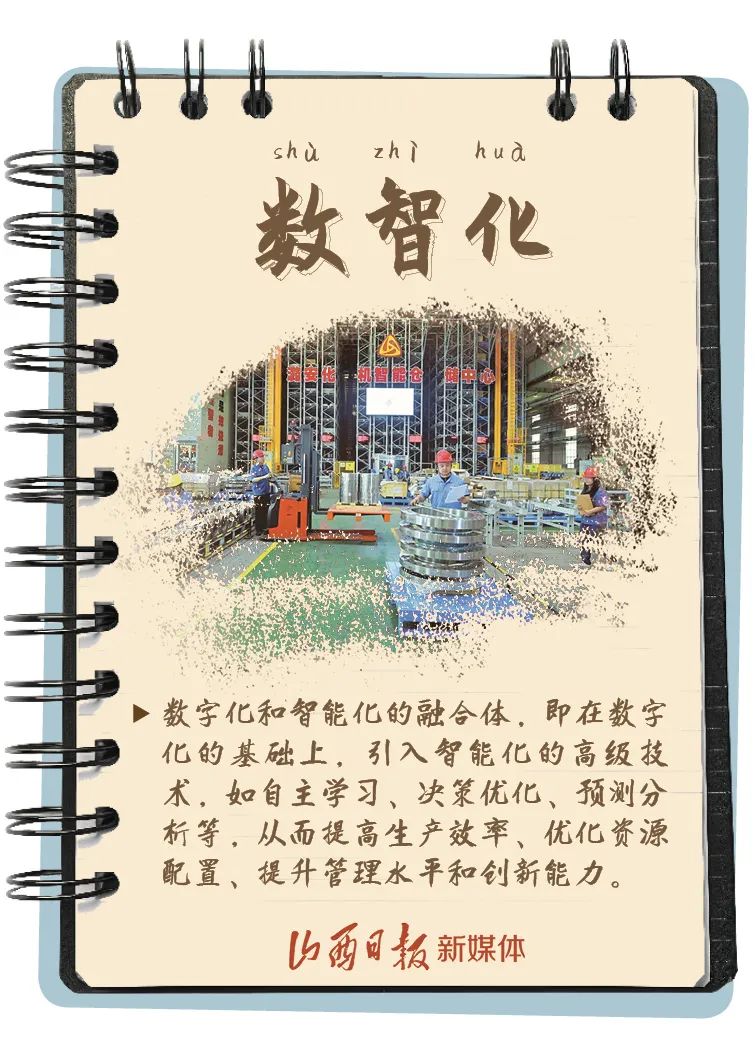 shù zhì huà
数智化
潞安化 机智能仓 储中心
数字化和智能化的融合体，即在数字
化的基础上，引入智能化的高级技
术，如自主学习、决策优化、预测分
析等，从而提高生产效率、优化资源
配置、提升管理水平和创新能力。
山西日报 新媒体